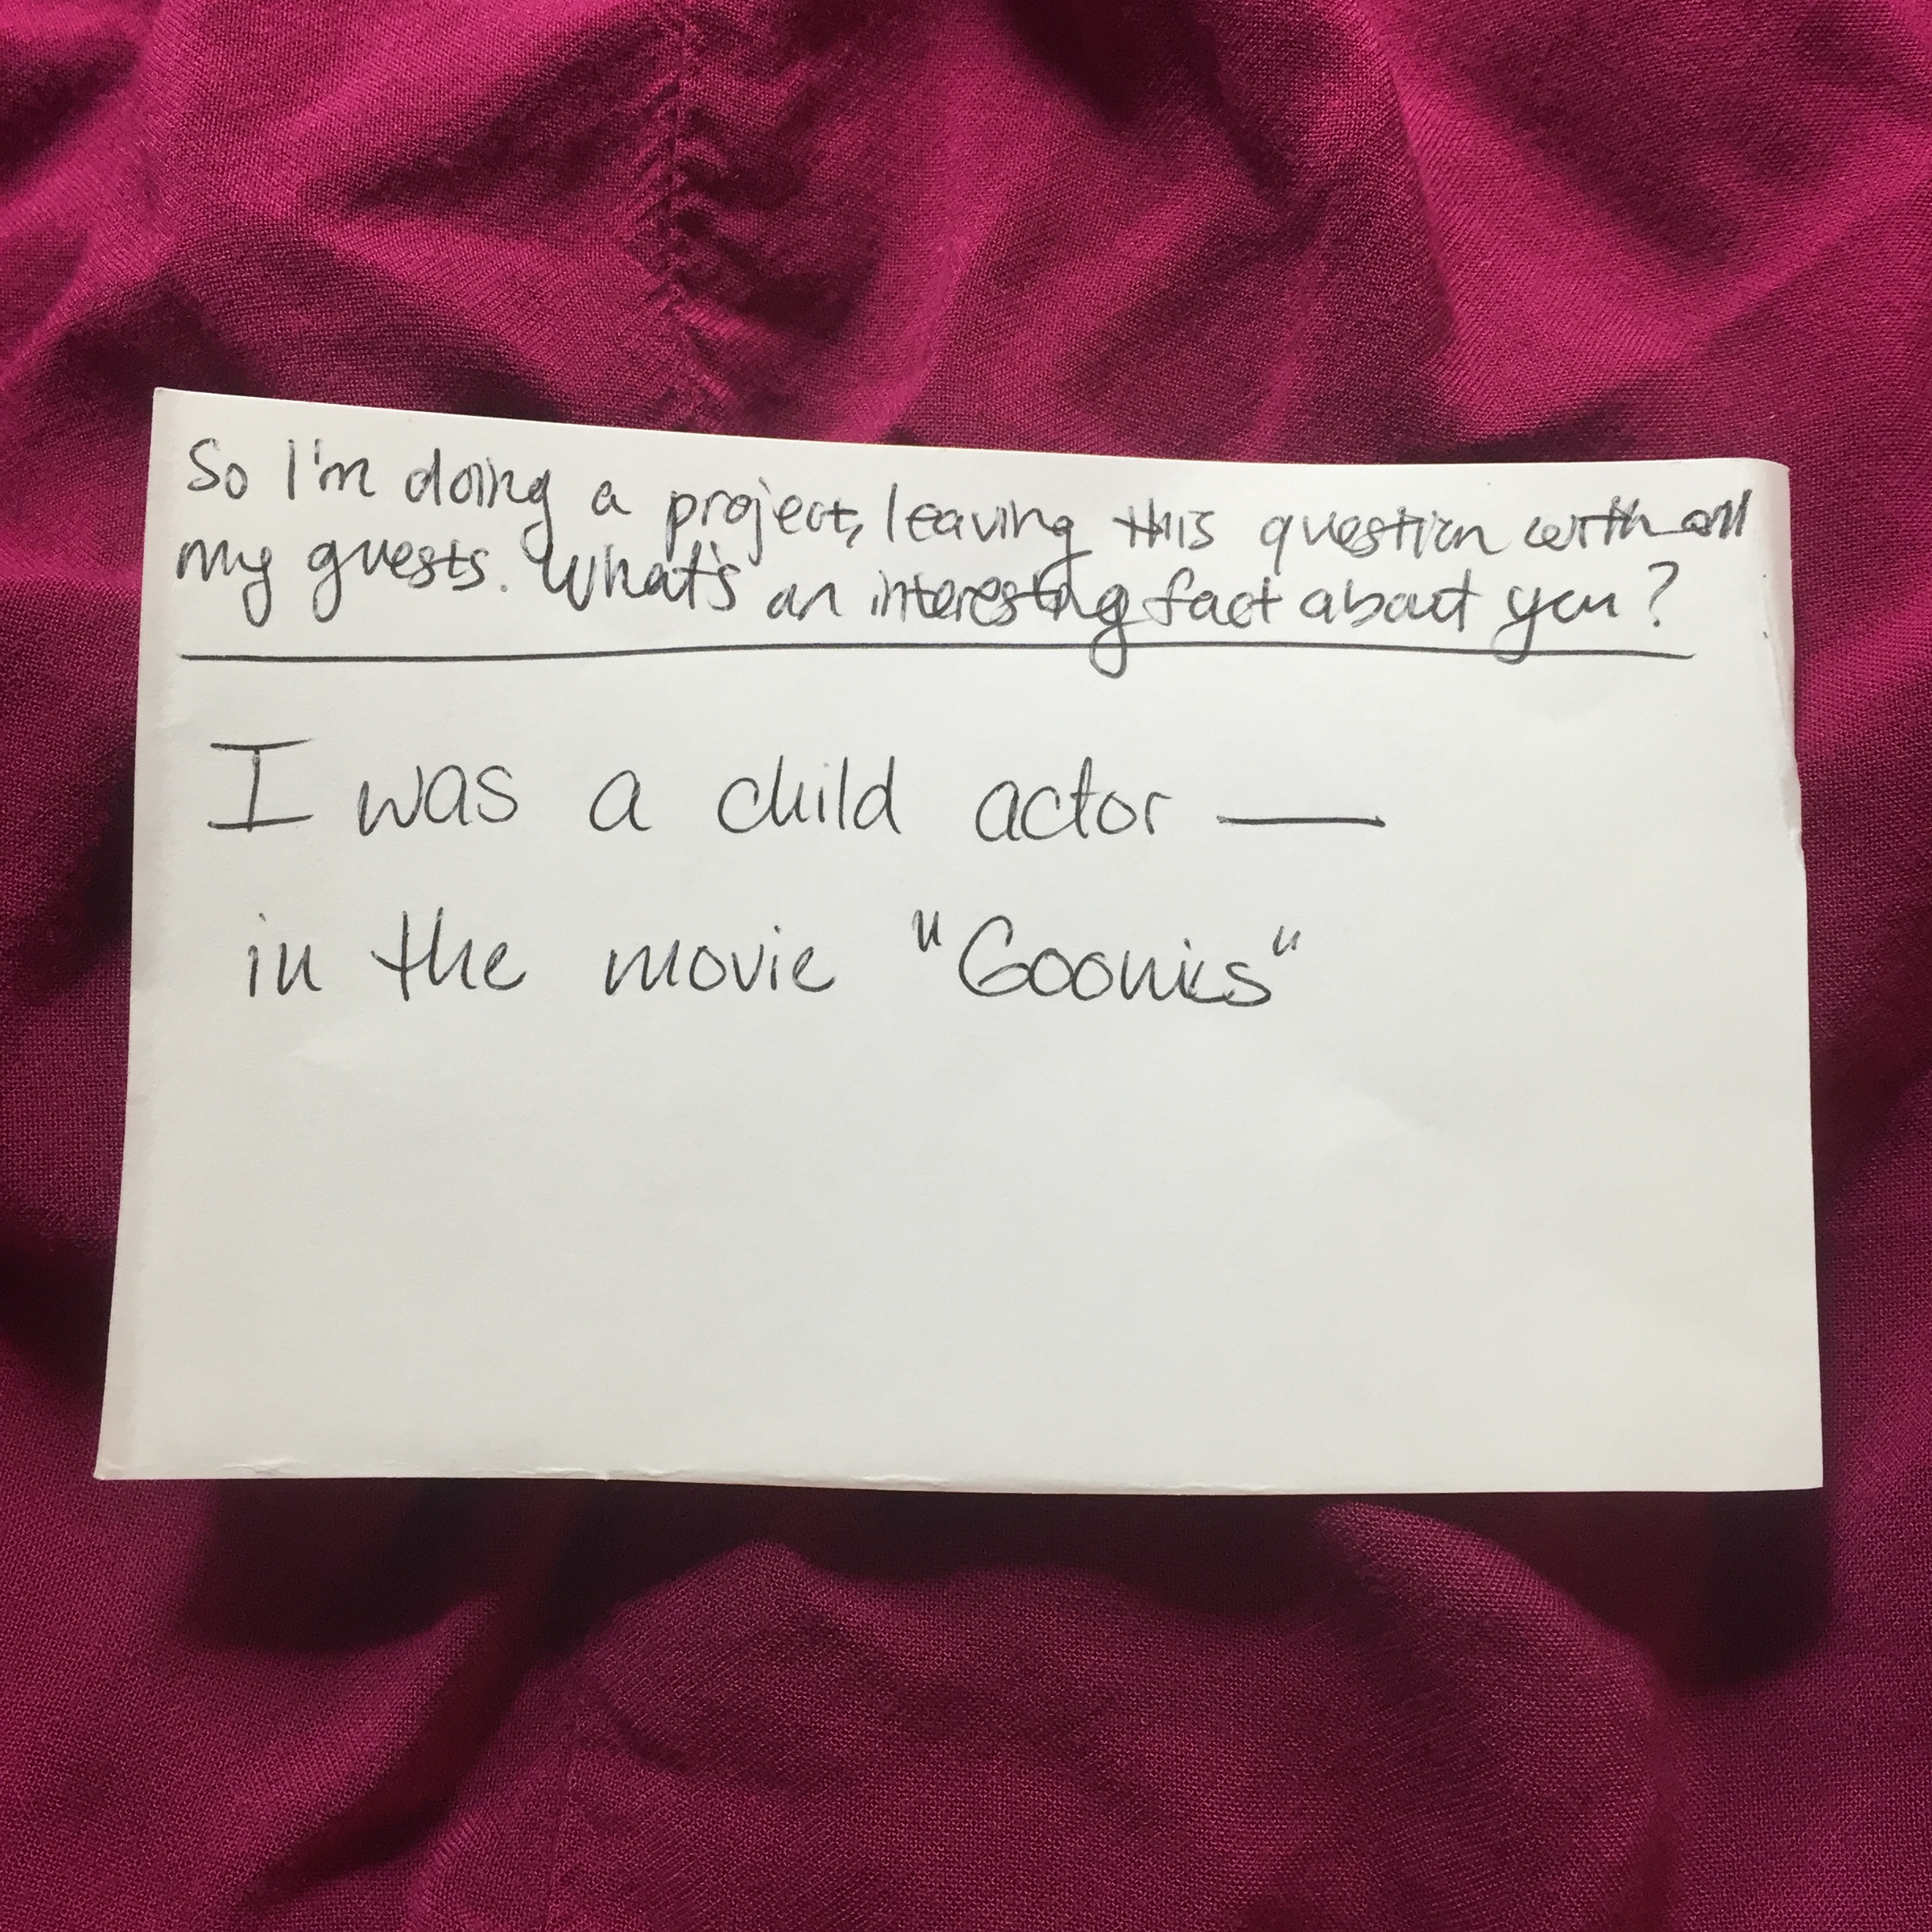 So I'm doing a project, leaving this question with all
my guests. What's an interesting fact about you?
I was a child actor —
in the movie "Goonies"